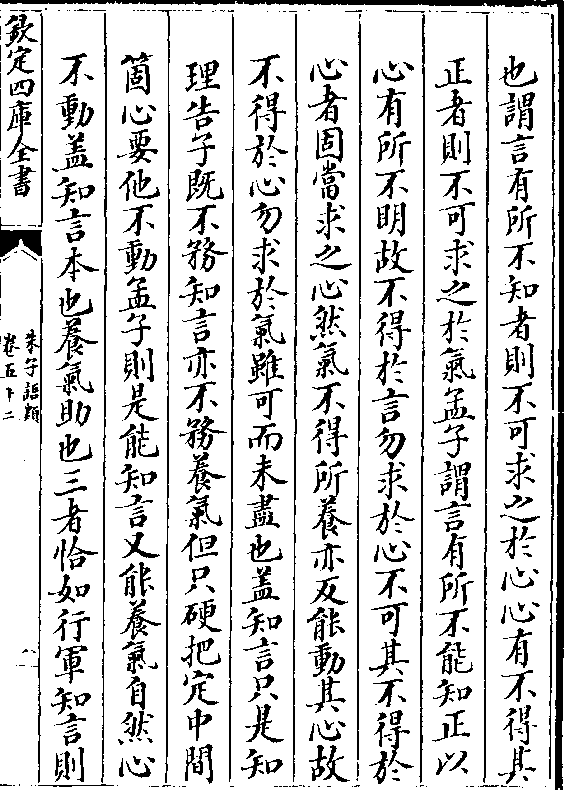 也謂言有所不知者則不可求之於心心有不得其
正者則不可求之於氣孟子謂言有所不能知正以
心有所不明故不得於言勿求於心不可其不得於
心者固當求之心然氣不得所養亦反能動其心故
不得於心勿求於氣雖可而未盡也盖知言只是知
理告子既不務知言亦不務養氣但只硬把定中間
箇心要他不動孟子則是能知言又能養氣自然心
不動盖知言本也養氣助也三者恰如行軍知言則
欽定四庫全書
朱子語類
卷五十二